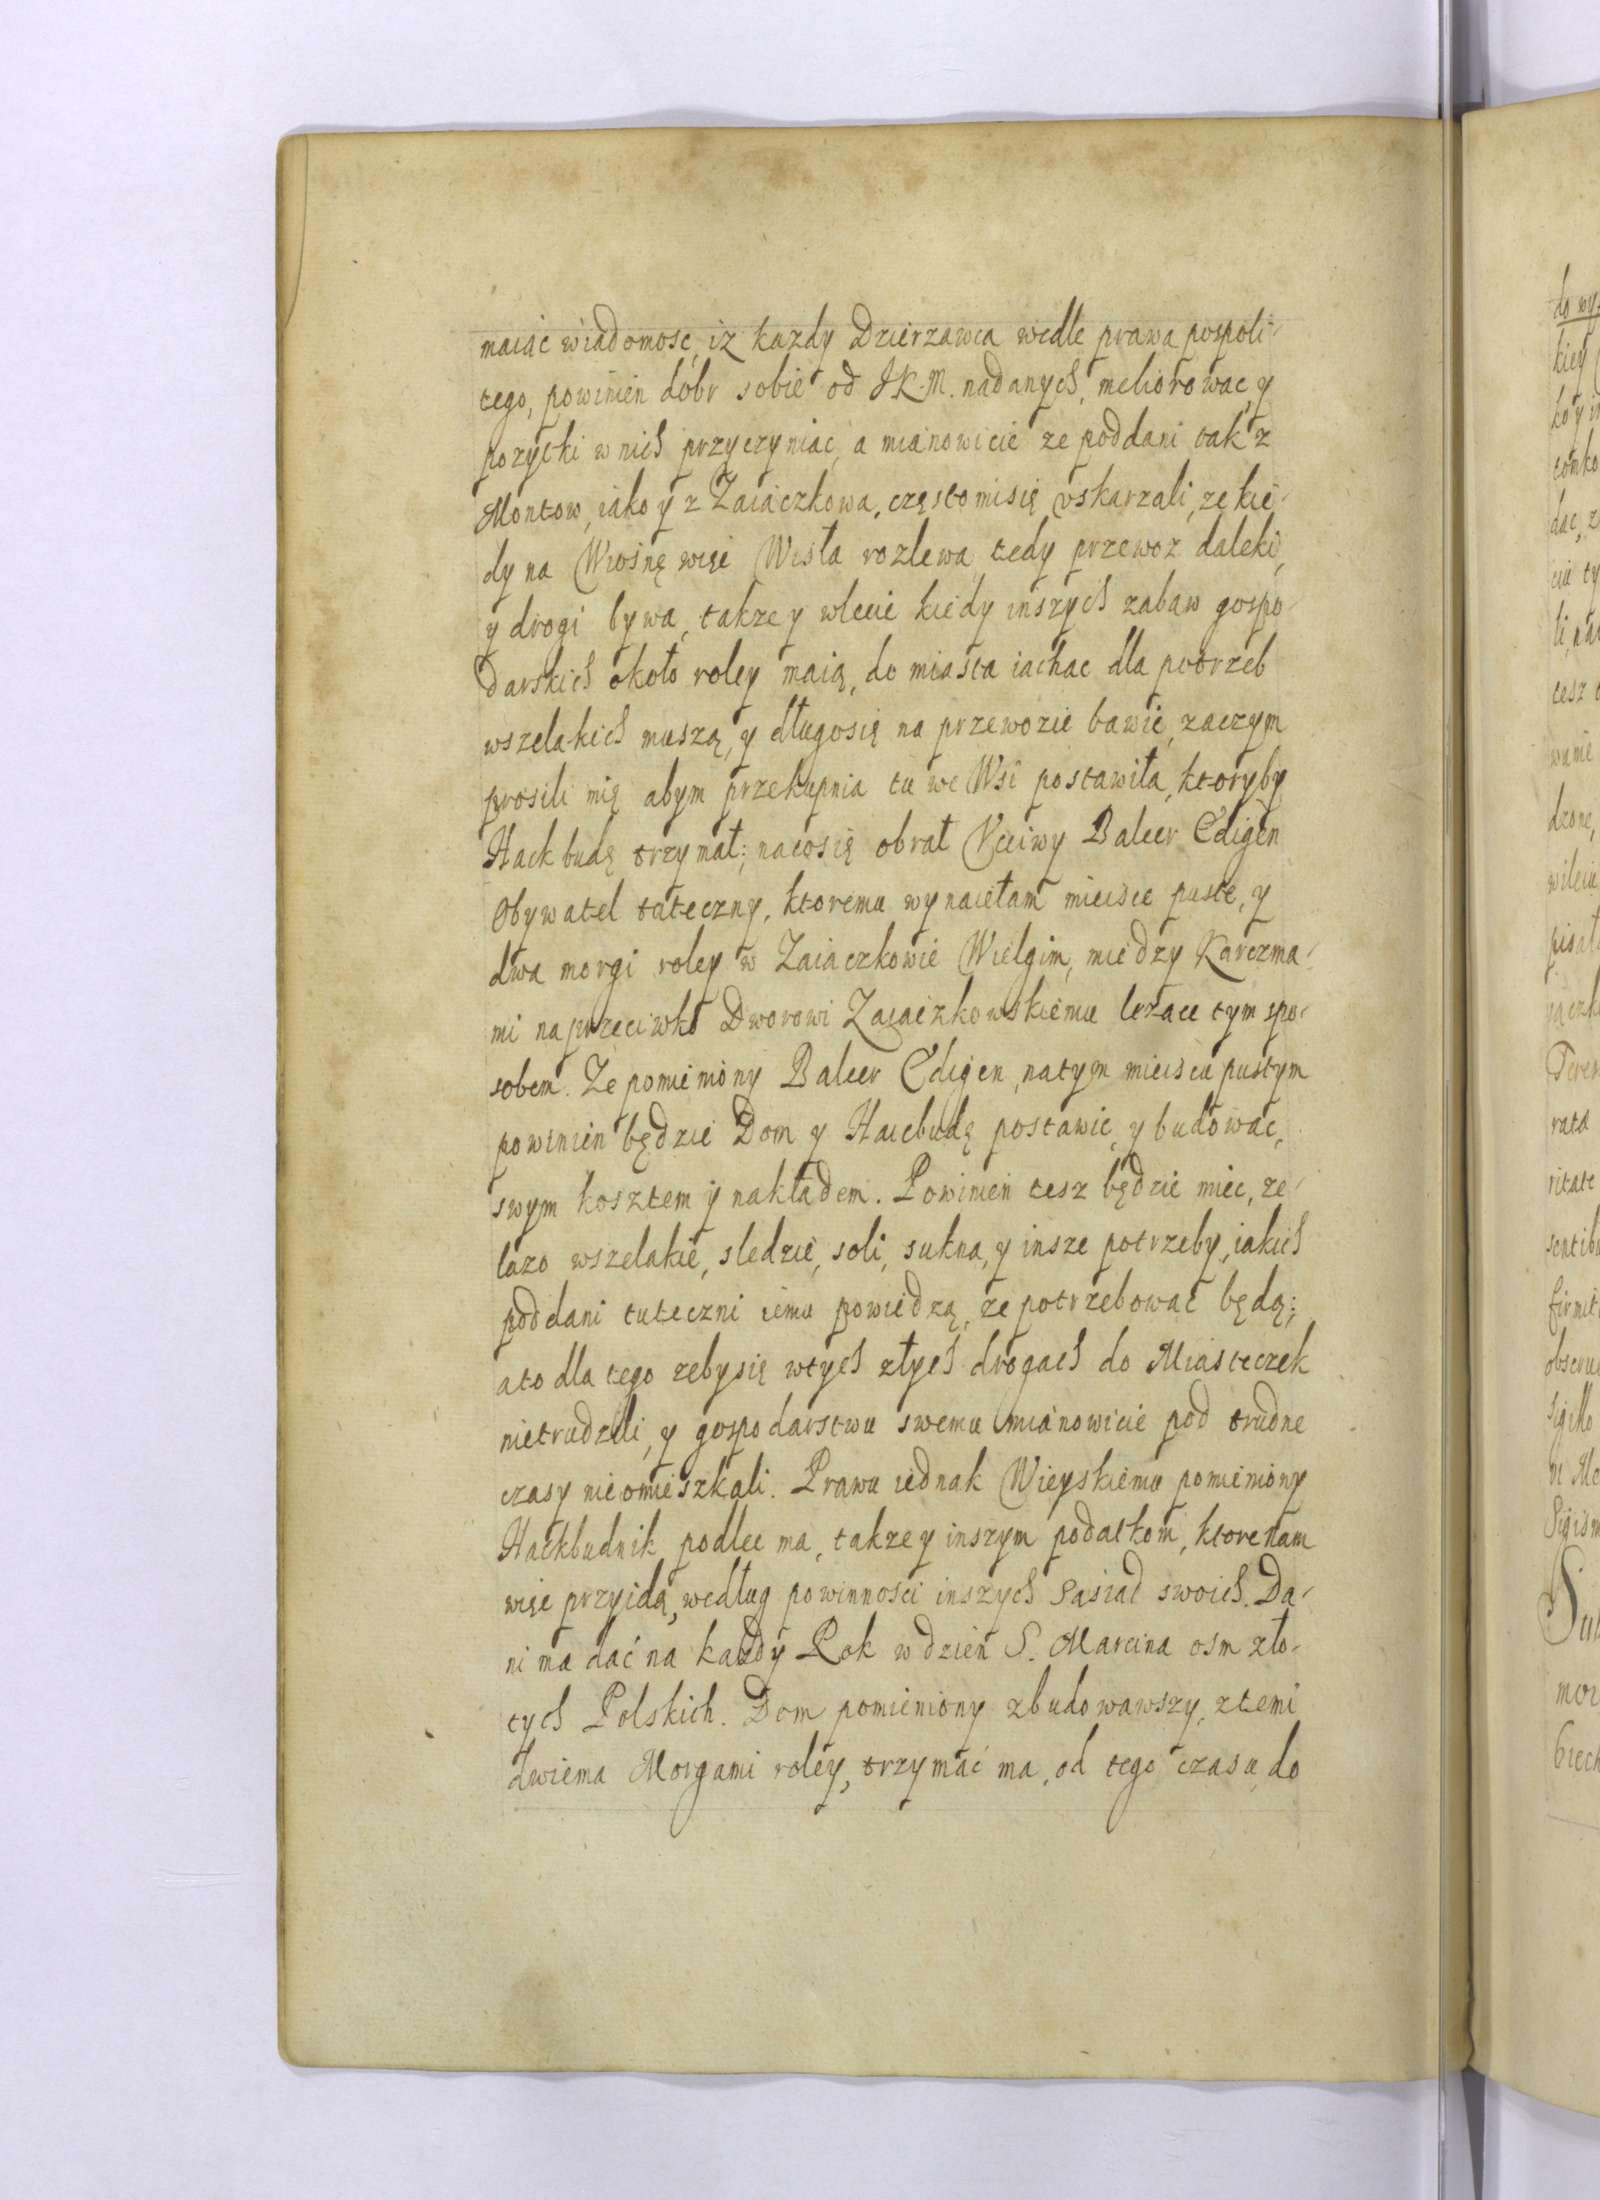 maiąc wiadomosc, iz kazdy Dzierzawca wedle prawa pospoli-
tego, powinien dóbr sobie od JKM. nadanych, meliorowac, y
pozytki w nich przyczyniac, a mianowicie ze poddani tak z
Montow, iako y z Zaiączkowa, częstomisię vskarzali, ze kie-
dy na Wiosnę więc Wisła rozlewa, tedy przewoz daleki,
y drogi bywa, takze y wlecie kiedy inszych zabaw gospo-
darskich około roley maią, do miasta iachac dla potrzeb
wszelakich muszą, y długosię na przewozie bawic, zaczym
prosili mię abym przekupnia tu we Wsi postawiła, ktoryby
Hackbudę trzymał; nacosię obrał Vcciwy Balcer Edigen
Obywatel tuteczny, ktoremu wynaiełam mieisce puste, y
dwa morgi roley w Zaiączkowie Wielgim, miedzy Karczma-
mi naprzeciwko Dworowi Zaiączkowskiemu lezace tym spo-
sobem. Ze pomieniony Balcer Edigen, natym mieiscu pustym
powinien będzie Dom y Hacbudę postawic, y budowac,
swym kosztem y nakładem. Powinien tesz będzie miec, ze-
lazo wszelakie, sledzie, soli, sukna, y insze potrzeby, iakich
poddani tuteczni iemu powiedzą, ze potrzebowac będą;
ato dla tego zebysię wtych złych drogach do Miasteczek
nietrudzili, y gospodarstwu swemu mianowicie pod trudne
czasy nieomieszkali. Prawu iednak Wieyskiemu pomieniony
Hackbudnik podlec ma, takze y inszym podatkom, ktore nam
więc przyidą, według powinnosci inszych Sąsiad swoich. Da-
ni ma dać na kazdy Rok w dzień S. Marcina osm zło-
tych Polskich. Dom pomieniony zbudowawszy, ztemi
dwiema Morgami roley, trzymać ma, od tego czasu do